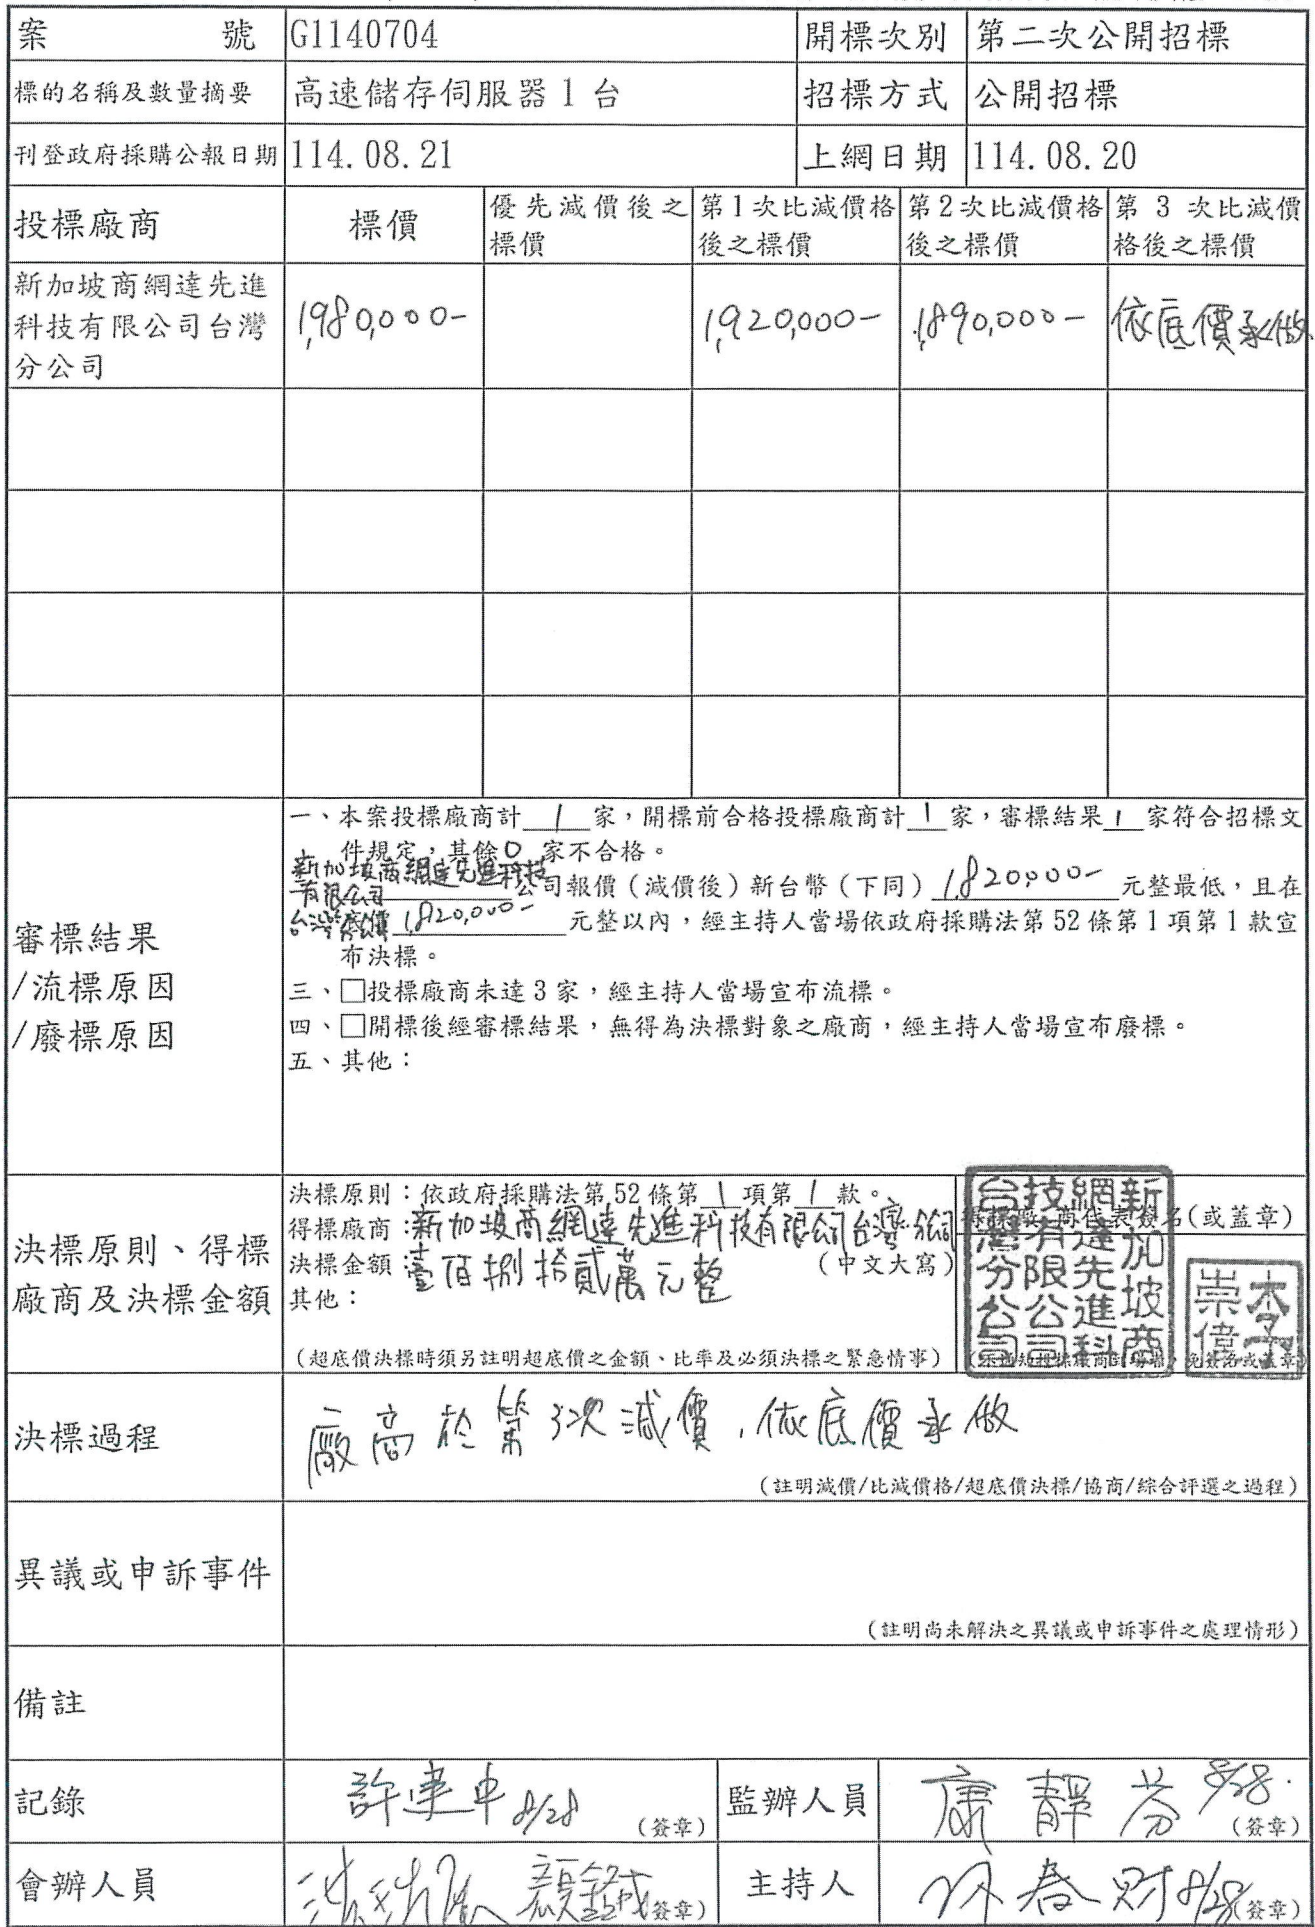 案 號 G1140704 開標次別 第二次公開招標
標的名稱及數量摘要 高速儲存伺服器1台 招標方式 公開招標
刊登政府採購公報日期 114.08.21 上網日期 114.08.20
投標廠商 標價 優先減價後之標價 第1次比減價格後之標價 第2次比減價格後之標價 第3次比減價格後之標價
新加坡商網達先進科技有限公司台灣分公司 1,980,000- 1,920,000- 1,890,000- 依底價承做
審標結果
/流標原因
/廢標原因
一、本案投標廠商計 1 家,開標前合格投標廠商計 1 家,審標結果 1 家符合招標文
件規定,其餘0家不合格。
新加坡商網達先進科技
有限公司
公司報價(減價後)新台幣(下同) 1,820,000- 元整最低,且在
台灣分公司
底價 1,820,000- 元整以內,經主持人當場依政府採購法第52條第1項第1款宣
布決標。
三、□投標廠商未達3家,經主持人當場宣布流標。
四、□開標後經審標結果,無得為決標對象之廠商,經主持人當場宣布廢標。
五、其他:
決標原則、得標
廠商及決標金額
決標原則:依政府採購法第52條第 1 項第 1 款。
得標廠商:新加坡商網達先進科技有限公司台灣分公司
決標金額:壹佰捌拾貳萬元整 (中文大寫)
其他:
(超底價決標時須另註明超底價之金額、比率及必須決標之緊急情事)
得標廠商代表簽名(或蓋章)
新加坡商
網達先進科
技有限公司
台灣分公司
李
崇偉
決標過程
廠商於第3次減價,依底價承做
(註明減價/比減價格/超底價決標/協商/綜合評選之過程)
異議或申訴事件
(註明尚未解決之異議或申訴事件之處理情形)
備註
記錄 8/28 (簽章) 監辦人員 康靜芬 8/28. (簽章)
會辦人員 (簽章) 主持人 春財 8/28 (簽章)